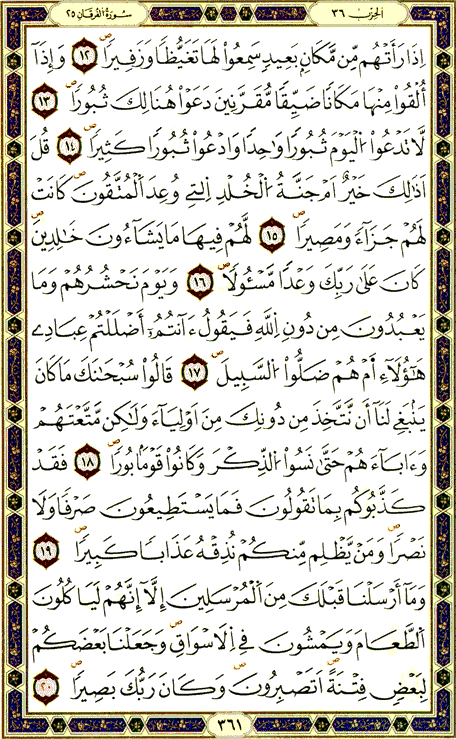 الحزب ٣٦
سُورَةُ الفُرْقَانِ ٢٥
إِذَا رَأَتْهُم مِّن مَّكَانٍۢ بَعِيدٍ سَمِعُواْ لَهَا تَغَيُّظاً وَزَفِيراًۖ ١٢ وَإِذَآ
أُلْقُواْ مِنْهَا مَكَاناً ضَيِّقاً مُّقَرَّنِينَ دَعَوْاْ هُنَالِكَ ثُبُوراًۖ ١٣
لَّا تَدْعُواْ اُ۬لْيَوْمَ ثُبُوراً وَٰحِداً وَادْعُواْ ثُبُوراً كَثِيراًۖ ١٤ قُلَ
اَذَٰلِكَ خَيْرٌ اَمْ جَنَّةُ اُ۬لْخُلْدِ اِ۬لتِے وُعِدَ اَ۬لْمُتَّقُونَۖ كَانَتْ
لَهُمْ جَزَآءً وَمَصِيراًۖ ١٥ لَّهُمْ فِيهَا مَا يَشَآءُونَ خَٰلِدِينَۖ
كَانَ عَلَىٰ رَبِّكَ وَعْداً مَّسْـُٔولاًۖ ١٦ وَيَوْمَ نَحْشُرُهُمْ وَمَا
يَعْبُدُونَ مِن دُونِ اِ۬للَّهِ فَيَقُولُ ءَآنتُمُۥٓ أَضْلَلْتُمْ عِبَادِے
هَٰٓؤُلَآءِ امْ هُمْ ضَلُّواْ اُ۬لسَّبِيلَۖ ١٧ قَالُواْ سُبْحَٰنَكَ مَا كَانَ
يَنۢبَغِے لَنَآ أَن نَّتَّخِذَ مِن دُونِكَ مِنَ اَوْلِيَآءَ وَلَٰكِن مَّتَّعْتَهُمْ
وَءَابَآءَهُمْ حَتَّىٰ نَسُواْ اُ۬لذِّكْرَ وَكَانُواْ قَوْماَۢ بُوراًۖ ١٨ فَقَدْ
كَذَّبُوكُم بِمَا تَقُولُونَ فَمَا يَسْتَطِيعُونَ صَرْفاً وَلَا
نَصْراًۖ وَمَنْ يَّظْلِم مِّنكُمْ نُذِقْهُ عَذَاباً كَبِيراًۖ ١٩
وَمَآ أَرْسَلْنَا قَبْلَكَ مِنَ اَ۬لْمُرْسَلِينَ إِلَّآ إِنَّهُمْ لَيَاكُلُونَ
اَ۬لطَّعَامَ وَيَمْشُونَ فِے اِ۬لَاسْوَاقِۖ وَجَعَلْنَا بَعْضَكُمْ
لِبَعْضٍ فِتْنَةً اَتَصْبِرُونَۖ وَكَانَ رَبُّكَ بَصِيراًۖ ٢٠
٣٦١